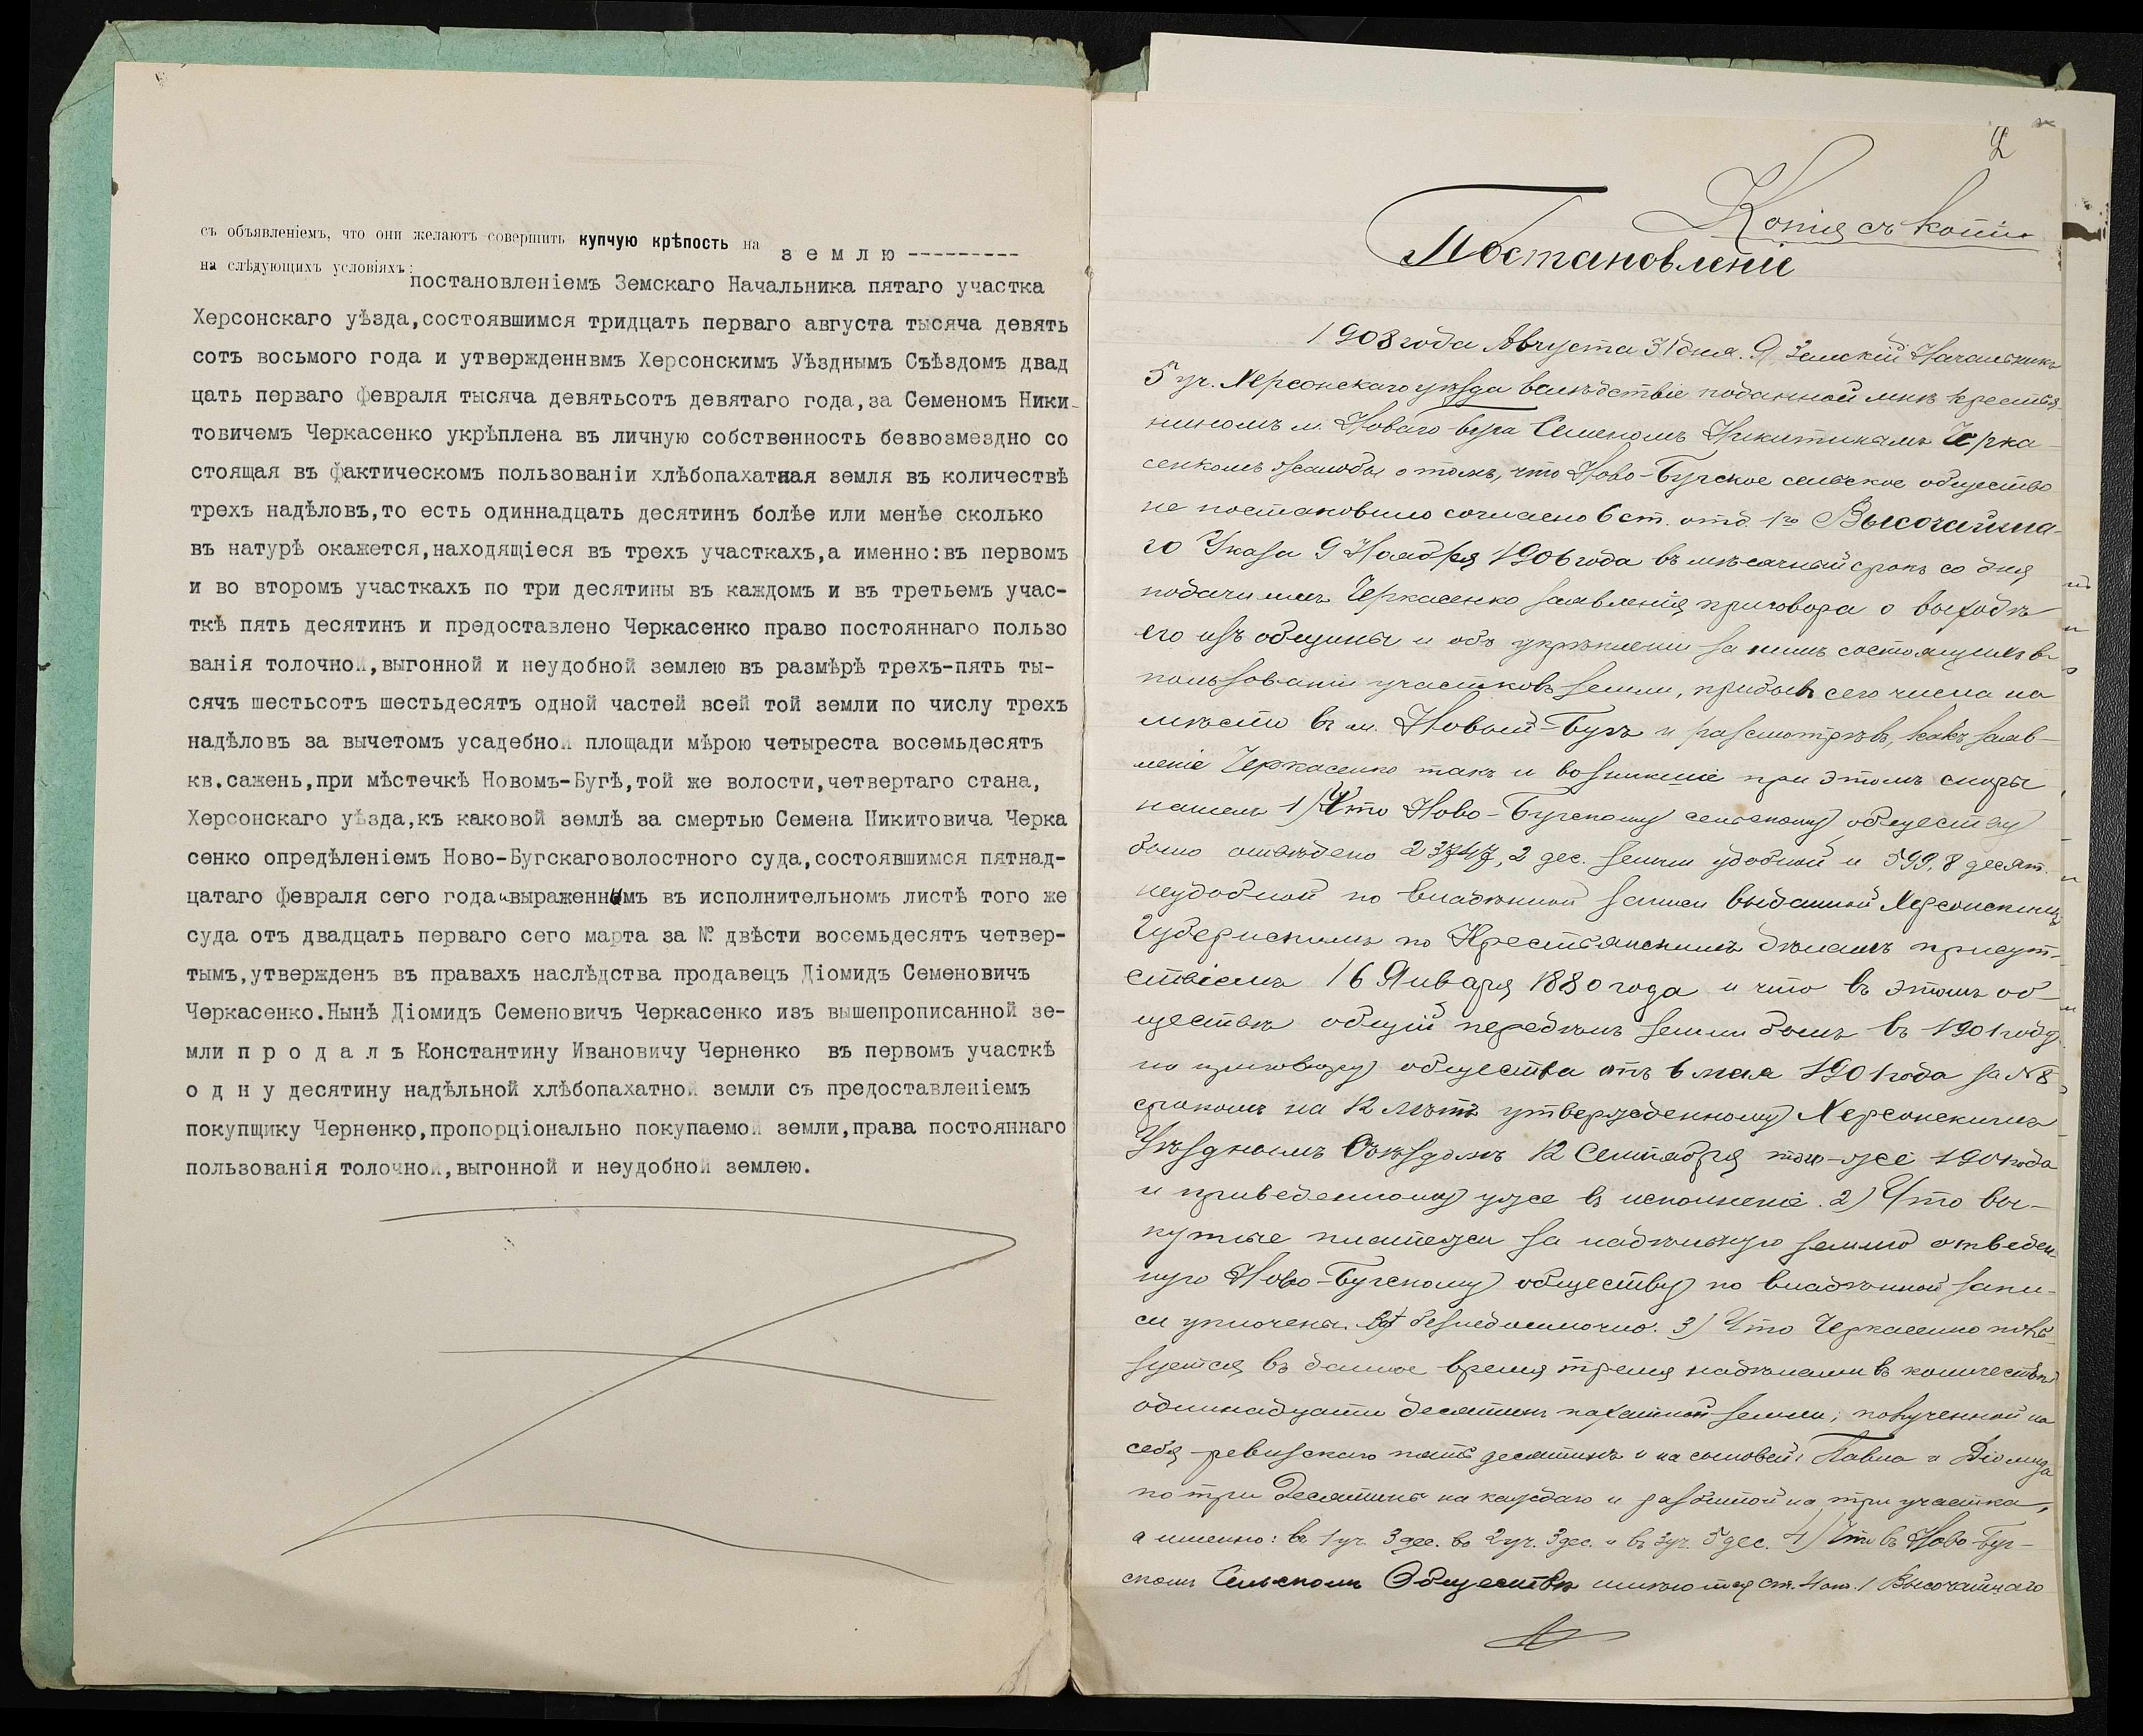 съ объявленіемъ, что они желаютъ совершить купчую крѣпость на з е м л ю ---------
на слѣдующихъ условіяхъ:
постановленіемъ Земскаго Начальника пятаго участка
Херсонскаго уѣзда,состоявшимся тридцать перваго августа тысяча девять
сотъ восьмого года и утвержденнвмъ Херсонскимъ Уѣзднымъ Съѣздомъ двад
цать перваго февраля тысяча девятьсотъ девятаго года,за Семеномъ Ники-
товичемъ Черкасенко укрѣплена въ личную собственность безвозмездно со
стоящая въ фактическомъ пользованіи хлѣбопахатная земля въ количествѣ
трехъ надѣловъ,то есть одиннадцать десятинъ болѣе или менѣе сколько
въ натурѣ окажется,находящіеся въ трехъ участкахъ,а именно:въ первомъ
и во второмъ участкахъ по три десятины въ каждомъ и въ третьемъ учас-
ткѣ пять десятинъ и предоставлено Черкасенко право постояннаго пользо
ванія толочной,выгонной и неудобной землею въ размѣрѣ трехъ-пять ты-
сячъ шестьсотъ шестьдесятъ одной частей всей той земли по числу трехъ
надѣловъ за вычетомъ усадебной площади мѣрою четыреста восемьдесятъ
кв.сажень,при мѣстечкѣ Новомъ-Бугѣ,той же волости,четвертаго стана,
Херсонскаго уѣзда,къ каковой землѣ за смертью Семена Никитовича Черка
сенко опредѣленіемъ Ново-Бугскаговолостного суда,состоявшимся пятнад-
цатаго февраля сего года и выраженнымъ въ исполнительномъ листѣ того же
суда отъ двадцать перваго сего марта за № двѣсти восемьдесятъ четвер-
тымъ,утвержденъ въ правахъ наслѣдства продавецъ Діомидъ Семеновичъ
Черкасенко.Нынѣ Діомидъ Семеновичъ Черкасенко изъ вышепрописанной зе-
мли п р о д а л ъ Константину Ивановичу Черненко въ первомъ участкѣ
о д н у десятину надѣльной хлѣбопахатной земли съ предоставленіемъ
покупщику Черненко,пропорціонально покупаемой земли,права постояннаго
пользованія толочной,выгонной и неудобной землею.
2
Копія съ копіи
Постановленіе
1908 года Августа 31 дня. Я, Земскій Начальникъ
5 уч. Херсонскаго уѣзда вслѣдствіе поданной мнѣ крестья-
ниномъ м. Новаго Буга Семеномъ Никитинымъ Черка-
сенкомъ жалобы о томъ, что Ново-Бугское сельское общество
не постановило согласно 6 ст. отд. 1го Высочайша-
го Указа 9 Ноября 1906 года въ мѣсячный срокъ со дня
подачи имъ Черкасенко заявленія приговора о выходѣ
его изъ общины и объ укрѣпленіи за нимъ состоящихъ въ
пользованіи участковъ земли, прибывъ сего числа на
мѣсто въ м. Новый-Бугъ и разсмотрѣвъ, какъ заяв-
леніе Черкасенко такъ и возникшіе при этомъ споры
нашелъ 1) Что Ново-Бугскому сельскому обществу
было отведено 23747,2 дес. земли удобной и 599,8 десят.
неудобной по владѣнной записи выданной Херсонскимъ
Губернскимъ по Крестьянскимъ дѣламъ присут-
ствіемъ 16 Января 1880 года и что въ этомъ об-
ществѣ общій передѣлъ земли былъ въ 1901 году
по приговору общества отъ 6 мая 1901 года за № 8
срокомъ на 12 лѣтъ утвержденному Херсонскимъ
Уѣзднымъ Съѣздомъ 12 Сентября того-же 1901 года
и приведенному уже въ исполненіе. 2) Что вы-
купные платежи за надѣльную землю отведен-
ную Ново-Бугскому обществу по владѣнной запи-
си уплочены безнедоимочно. 3) Что Черкасенко поль-
зуется въ данное время тремя надѣлами въ количествѣ
одинадцати десятинъ пахатной земли, полученной на
себя ревизскаго пять десятинъ и на сыновей: Павла и Діомида
по три десятины на каждаго и разбитой на три участка,
а именно: въ 1 уч. 3 дес. во 2 уч. 3 дес. и въ 3 уч. 5 дес. 4) Что въ Ново-Буг-
скомъ Сельскомъ Обществѣ имѣются ст. 4 отд. 1 Высочайшаго